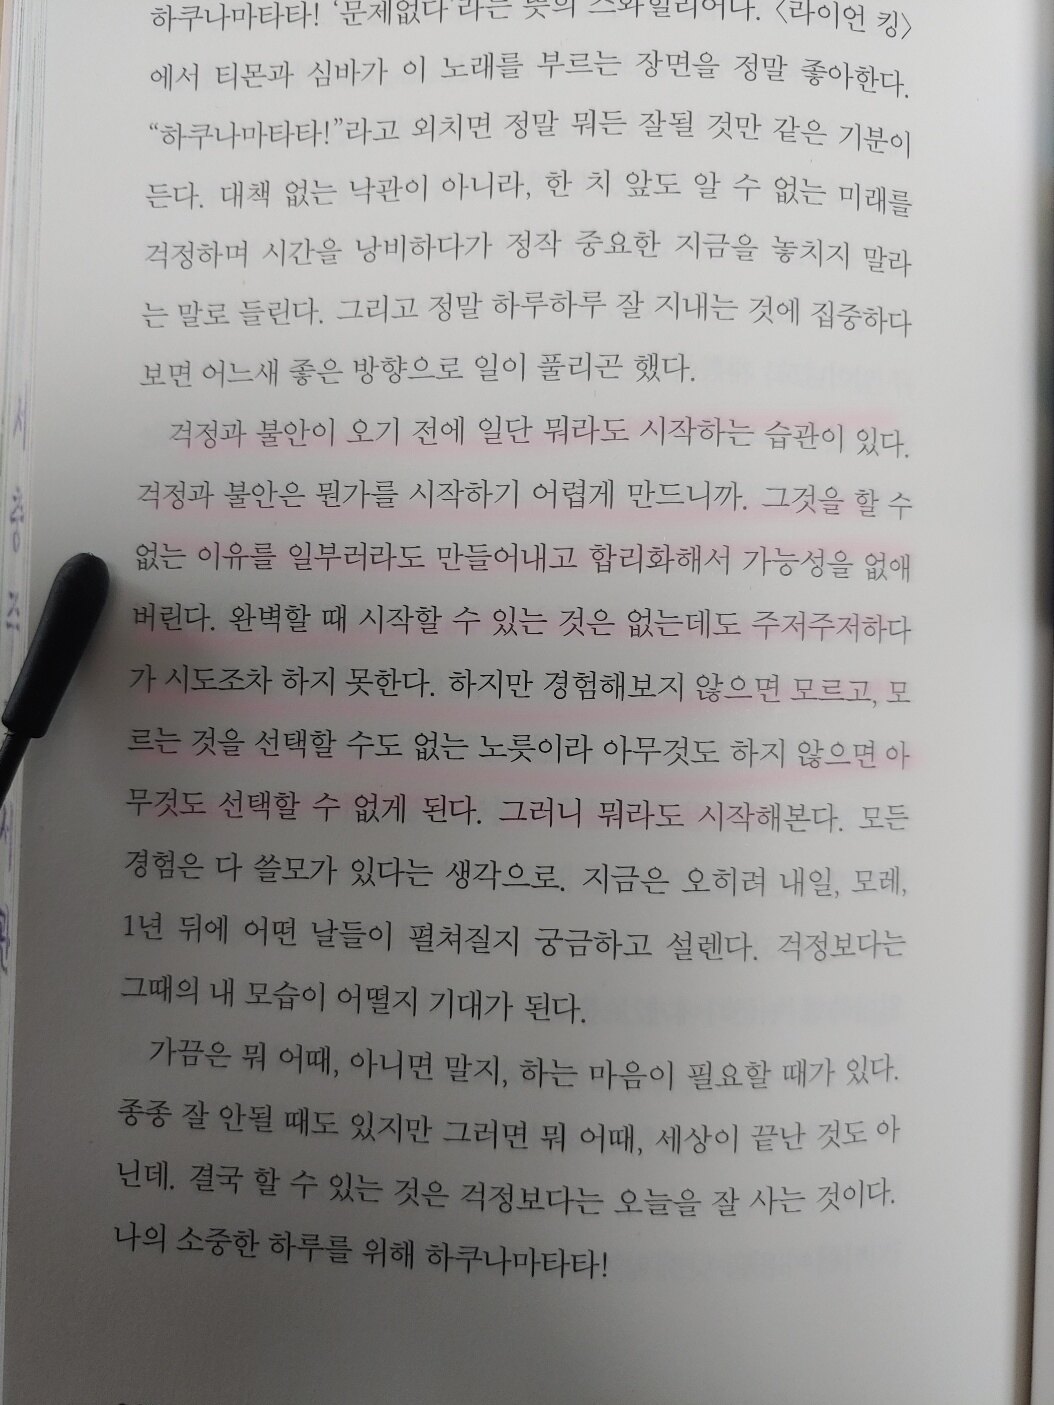 하쿠나마타타! ‘문제없다’라는 뜻의 스와힐리어다. 〈라이언 킹〉
에서 티몬과 심바가 이 노래를 부르는 장면을 정말 좋아한다.
“하쿠나마타타!”라고 외치면 정말 뭐든 잘될 것만 같은 기분이
든다. 대책 없는 낙관이 아니라, 한 치 앞도 알 수 없는 미래를
걱정하며 시간을 낭비하다가 정작 중요한 지금을 놓치지 말라
는 말로 들린다. 그리고 정말 하루하루 잘 지내는 것에 집중하다
보면 어느새 좋은 방향으로 일이 풀리곤 했다.
걱정과 불안이 오기 전에 일단 뭐라도 시작하는 습관이 있다.
걱정과 불안은 뭔가를 시작하기 어렵게 만드니까. 그것을 할 수
없는 이유를 일부러라도 만들어내고 합리화해서 가능성을 없애
버린다. 완벽할 때 시작할 수 있는 것은 없는데도 주저주저하다
가 시도조차 하지 못한다. 하지만 경험해보지 않으면 모르고, 모
르는 것을 선택할 수도 없는 노릇이라 아무것도 하지 않으면 아
무것도 선택할 수 없게 된다. 그러니 뭐라도 시작해본다. 모든
경험은 다 쓸모가 있다는 생각으로. 지금은 오히려 내일, 모레,
1년 뒤에 어떤 날들이 펼쳐질지 궁금하고 설렌다. 걱정보다는
그때의 내 모습이 어떨지 기대가 된다.
가끔은 뭐 어때, 아니면 말지, 하는 마음이 필요할 때가 있다.
종종 잘 안될 때도 있지만 그러면 뭐 어때, 세상이 끝난 것도 아
닌데. 결국 할 수 있는 것은 걱정보다는 오늘을 잘 사는 것이다.
나의 소중한 하루를 위해 하쿠나마타타!